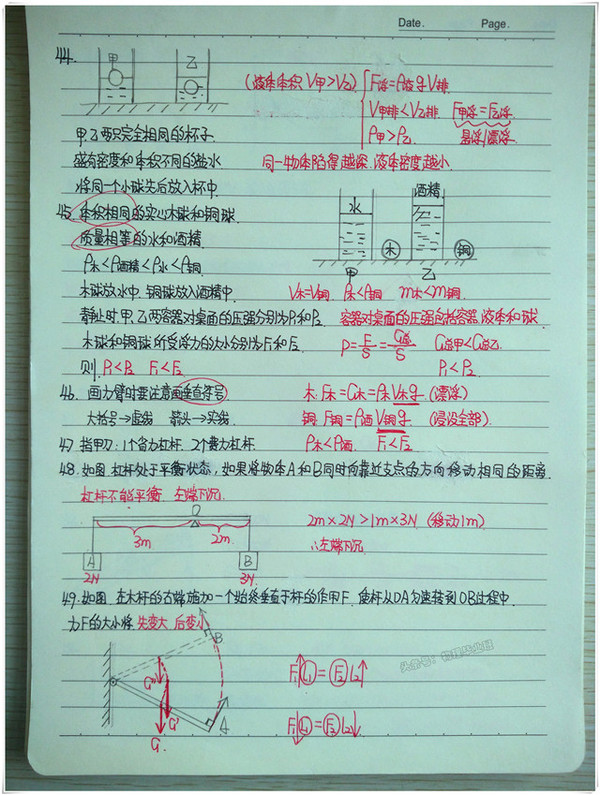 Date. Page.
44.
甲 乙
(液体体积 V甲>V乙) F浮=ρ液gV排
V甲排<V乙排 F甲浮=F乙浮
甲.乙两只完全相同的杯子. ρ甲>ρ乙 悬浮/漂浮
盛有密度和体积不同的盐水 同一物体陷得越深.液体密度越小.
将同一个小球先后放入杯中.
45. 体积相同的实心木球和铜球
质量相等的水和酒精
水 酒精 木 铜
甲 乙
ρ木<ρ酒精<ρ水<ρ铜
木球放水中.铜球放入酒精中. V木=V铜. ρ木<ρ铜 m木<m铜
静止时.甲.乙两容器对桌面的压强分别为P1和P2. 容器对桌面的压强包括容器.液体和球.
木球和铜球所受浮力的大小分别为F1和F2. P=F/S=G总/S G总甲<G总乙
则 P1<P2 F1<F2 P1<P2
46. 画力臂时要注意画垂直符号 木:F木=G木=ρ木V木g (漂浮)
大括号→虚线 箭头→实线 铜:F铜=ρ酒V铜g (浸没全部)
47. 指甲刀:1个省力杠杆. 2个费力杠杆. ρ木<ρ酒 F1<F2
48. 如图.杠杆处于平衡状态,如果将物体A和B同时向靠近支点的方向移动相同的距离.
杠杆不能平衡. 左端下沉.
O
3m 2m 2m×2N>1m×3N (移动1m)
A B ∴左端下沉
2N 3N
49. 如图.在木杆的右端施加一个始终垂直于杆的作用F.使杆从OA匀速转到OB过程中.
力F的大小将先变大 后变小
B
头条号:物理毕业班
G'' G' F1↑L1=F2L2↑
A
G F1↓L1=F2L2↓